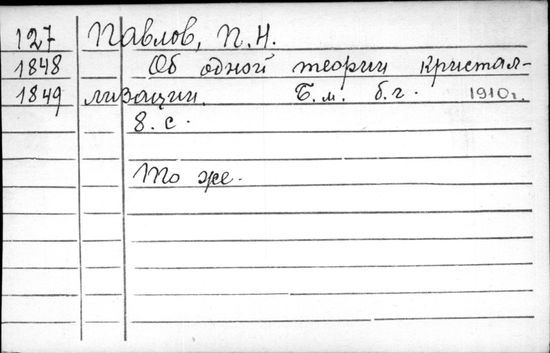 127 Павлов, П.Н.
1848 Об одной теории кристал-
1849 лизации. Б.м. б.г. 1910г.
8. с.
То же.